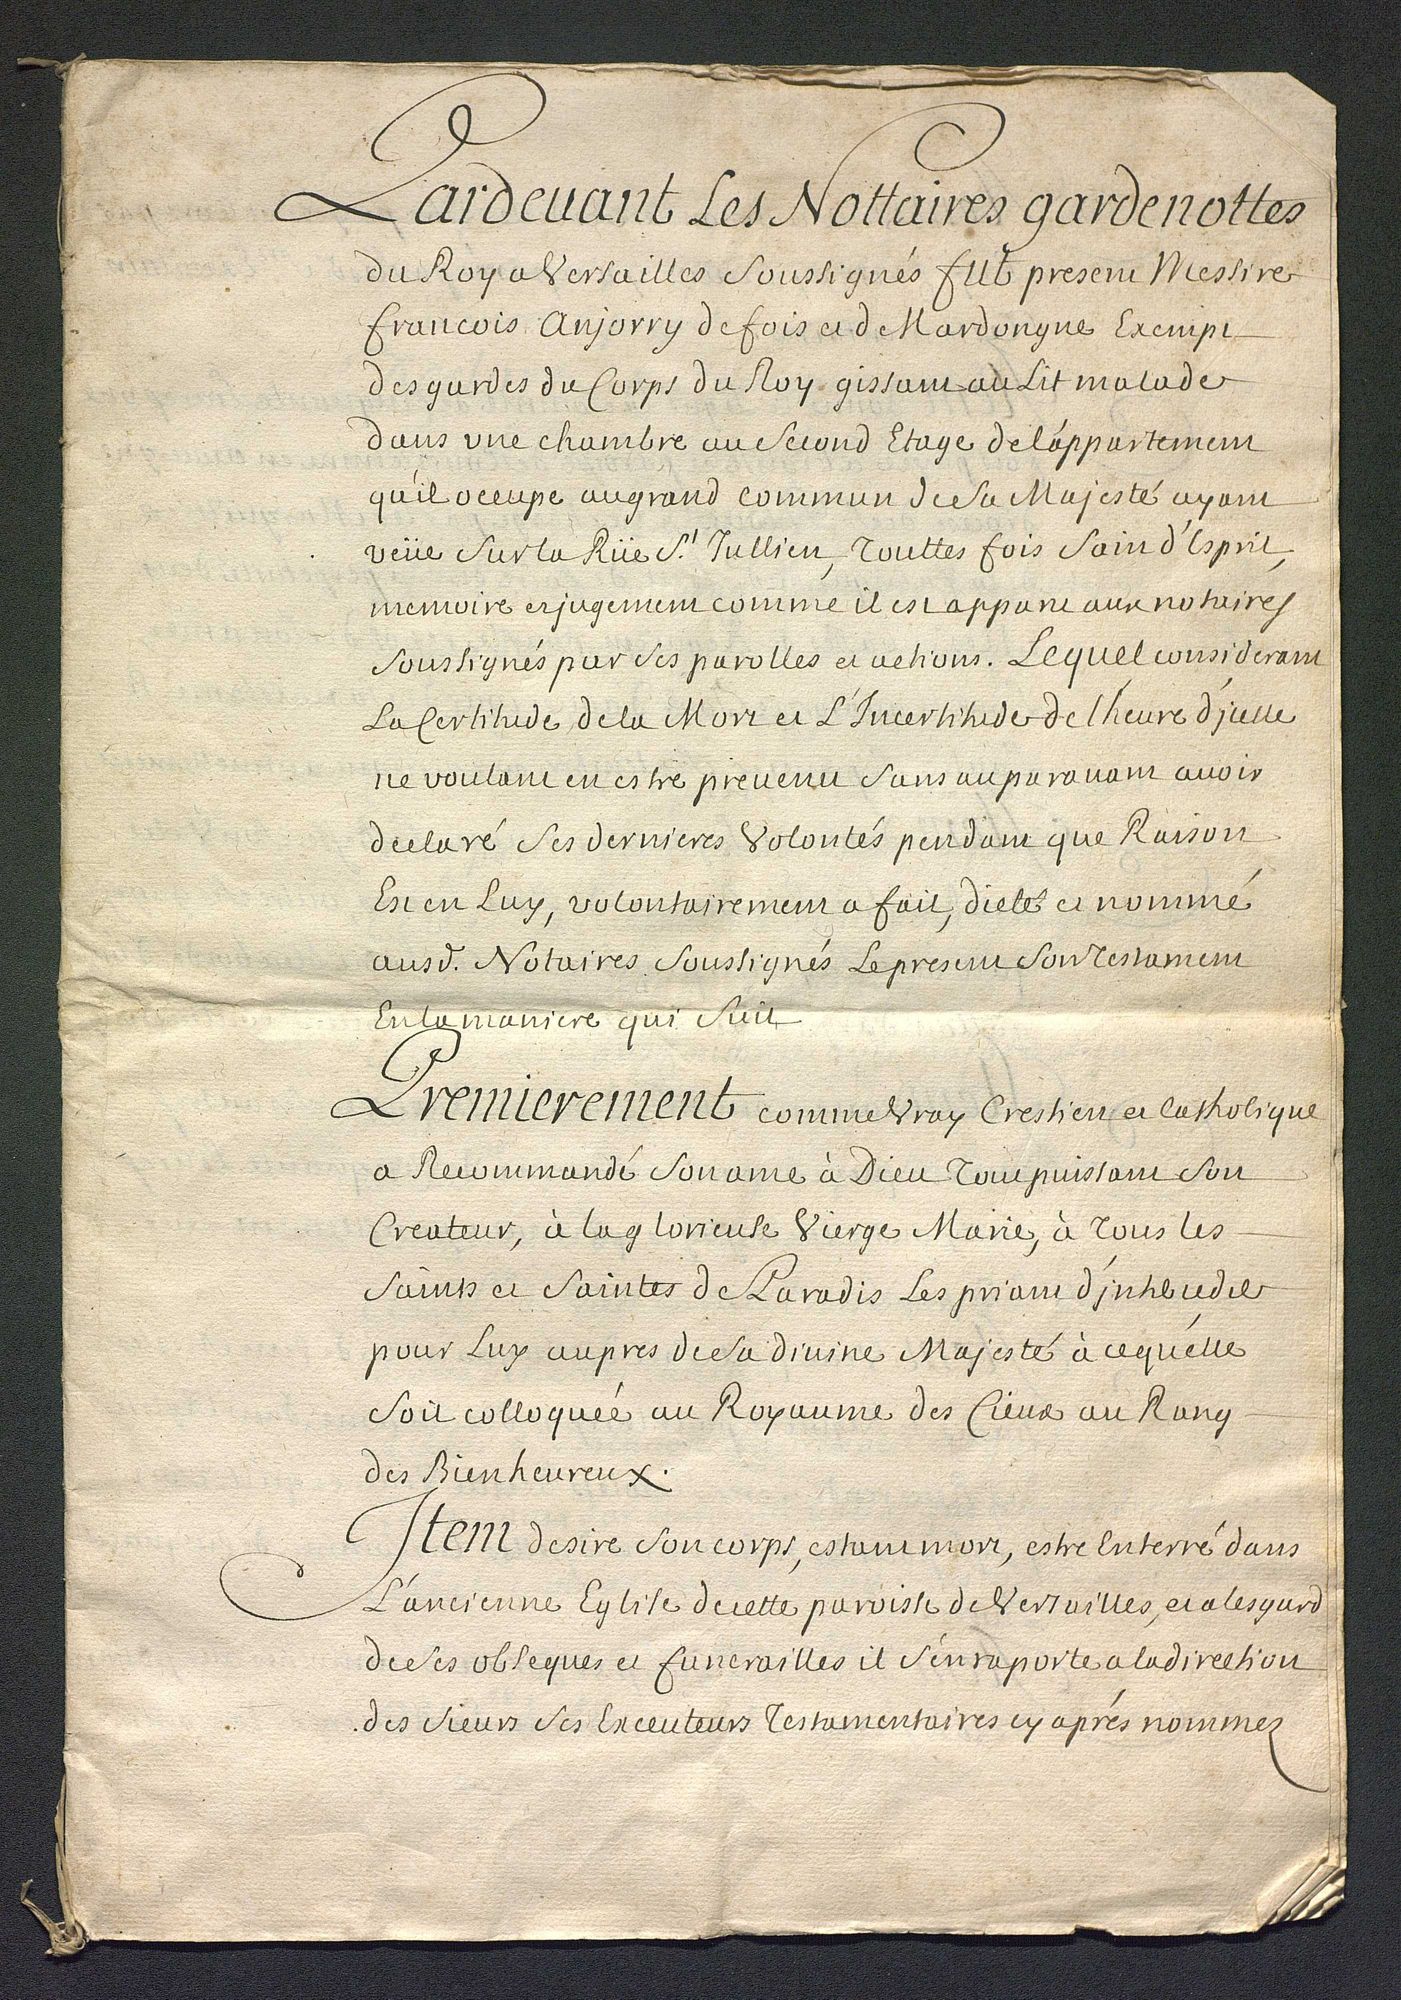 Pardeuant Les Nottaires gardenottes
du Roy a Versailles Soussignés fut present Messire
francois Anjorry de fois et de Mardongne Exempt
des gardes du Corps du Roy gissant au Lit malade
dans vne chambre au Second Etage de l'áppartement
qu'il occupe au grand commun de Sa Majesté ayant
veüe Sur la Rüe St. Jullien, Touttes fois Sain d'Esprit,
memoire et jugement comme il est apparu aux notaires
Soussignés par Ses parolles et actions. Lequel considerant
La Certitude de la Mort et L'Incertitude de l'heure d'jcelle
ne voulant en estre preuenu Sans auparauant avoir
declaré Ses dernieres Volontés pendant que Raison
Est en Luy, volontairement a fait, dicté et nommé
ausd. Notaires Soussignés Le present Son Testament
En la maniere qui Suit
Premierement comme Vray Crestien et Catholique
a Recommandé Son ame à Dieu Tout puissant Son
Createur, à la glorieuse Vierge Marie, à Tous les
Saints et Saintes de Paradis Les priant d'jnterceder
pour Luy aupres de Sa diuine Majesté à ce qu'elle
Soit colloquée au Royaume des Cieux au Rang
des Bienheureux.
Item desire Son corps, estant mort, estre Enterré dans
L'ancienne Eglise de cette paroisse de Versailles, et a lesgard
de Ses obseques et funerailles il S'en raporte a la direction
des Sieurs Ses Executeurs Testamentaires cy aprés nommez